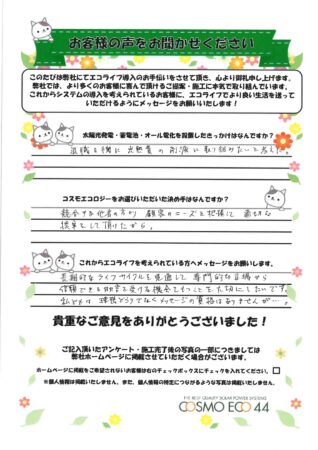 お客様の声をお聞かせください
このたびは弊社にてエコライフ導入のお手伝いをさせて頂き、心より御礼申し上げます。
弊社では、より多くのお客様に喜んで頂けるご提案・施工に本気で取り組んでいます。
これからシステムの導入を考えられているお客様に、エコライフでより良い生活を送って
いただけるようにメッセージをお願いします！
太陽光発電・蓄電池・オール電化を設置したきっかけはなんですか？
退職を機に光熱費の削減に取り組みたいと考えた。
コスモエコロジーをお選びいただいた決め手はなんですか？
競合する他者の方が 顧客のニーズを把握して 適切な
提案をして頂たから。
これからエコライフを考えられている方へメッセージをお願いします。
長期的なライフサイクルを見通して 専門的な立場から
信頼できる
機会を
大切にしたいです。
メッセージの資格はありませんが…。
貴重なご意見をありがとうございました！
ご記入頂いたアンケート・施工完了後の写真の一部につきましては
弊社ホームページに掲載させていただく場合がございます。
ホームページに掲載をご希望されないお客様は右のチェックボックスにチェックを入れてください。
※個人情報は掲載いたしません。また、個人情報の特定につながるような写真は掲載いたしません。
THE BEST QUALITY SOLAR POWER SYSTEMS
COSMO ECO 44